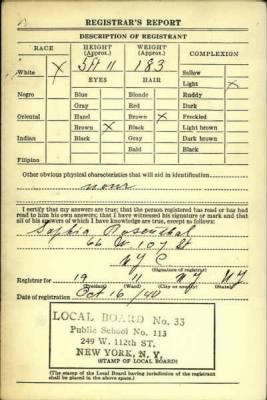 REGISTRAR'S REPORT
DESCRIPTION OF REGISTRANT
RACE HEIGHT (Approx.) WEIGHT (Approx.) COMPLEXION
White X 5 Ft 11 183 Sallow
EYES HAIR Light X
Negro Blue Blonde Ruddy
Gray Red Dark
Oriental Hazel Brown X Freckled
Brown X Black Light brown
Indian Black Gray Dark brown
Bald Black
Filipino
Other obvious physical characteristics that will aid in identification
none
I certify that my answers are true; that the person registered has read or has had
read to him his own answers; that I have witnessed his signature or mark and that
all of his answers of which I have knowledge are true, except as follows:
Sophia Rosenthal
66 W 107 St
NYC
(Signature of registrar)
Registrar for 19 11 NY NY
(Precinct) (Ward) (City or county) (State)
Date of registration Oct 16/40
LOCAL BOARD No. 33
Public School No. 113
249 W. 112th ST.
NEW YORK, N. Y.
(STAMP OF LOCAL BOARD)
(The stamp of the Local Board having jurisdiction of the registrant
shall be placed in the above space.)